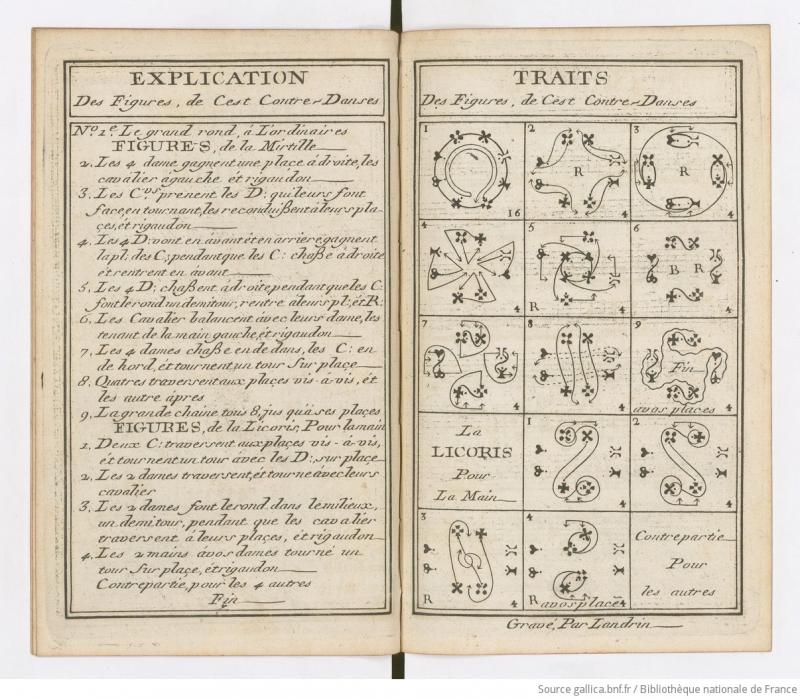 EXPLICATION
Des Figures, de Cest Contre-Danses
N.º 1.e Le grand rond, à L'ordinaires
FIGURES, de la Mirtille
2. Les 4 dame gagnent une place à droite, les
cavalier à gauche et rigaudon
3. Les C.vrs prenent les D: qui leurs font
face, en tournant, les reconduißent à leurs pla-
ces, ét rigaudon
4. Les 4 D: vont en àvant ét en arriere gagnent
la pl: des C; pendant que les C: chaße à droite
ét rentrent en àvant
5. Les 4 D; chaßent à droite pendant que les C:
font le rond un demi tour, rentre à leurs pl; ét R:
6. Les Cavalier balancent àvec leurs dame, les
tenant de la main gauche, ét rigaudon
7. Les 4 dames chaße en dedans, les C: en
de hord, ét tournent un tour Sur place
8. Quatres traversent aux plaçes vis-à-vis, ét
les autre àpres
9. La grande chaine tous 8, jus qu'à ses plaçes
FIGURES, de la Licoris, Pour la main
1. Deux C: traversent aux plaçes vis-à-vis,
ét tournent un tour àvec les D: sur plaçe
2. Les 2 dames traversent, ét tourne àvec leurs
cavalier
3. Les 2 dames font le rond dans le milieux,
un demi tour, pendant que les cavalier
traversent à leurs places, ét rigaudon
4. Les 2 mains àvos dames tourné un
tour Sur plaçe, ét rigaudon
Contrepartie, pour les 4 autres
Fin
TRAITS
Des Figures, de Cest Contre-Danses
1 2 3
R R
16 4 4
4 5 6
B R
4 R 4 4
7 8 9
Fin
4 4 avos places 4
La
LICORIS
Pour
La Main
1 2
4 4
3 4
R 4 R avos place 4
Contrepartie
Pour
les autres
Gravé, Par Landrin
Source gallica.bnf.fr / Bibliothèque nationale de France